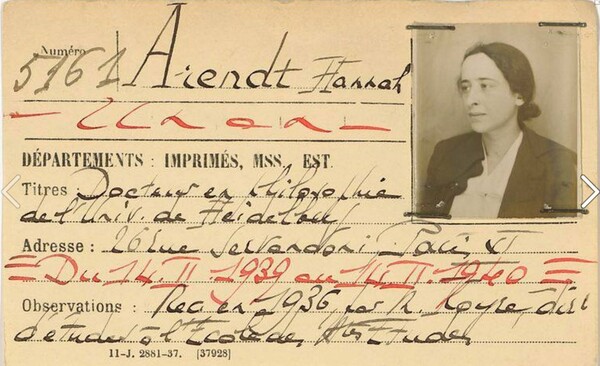 Numéro
5161 Arendt Hannah
DÉPARTEMENTS : IMPRIMÉS, MSS., EST.
Titres Docteur en philosophie
de l'Univ. de Heidelberg
Adresse : 26 rue Servandoni Paris VI
Du 14. II. 1939 au 14. II. 1940
Observations : Rec. en 1936, par Koyré, dir.
d'études à l'Ecole des Htes Etudes
11-J. 2881-37. [37928]